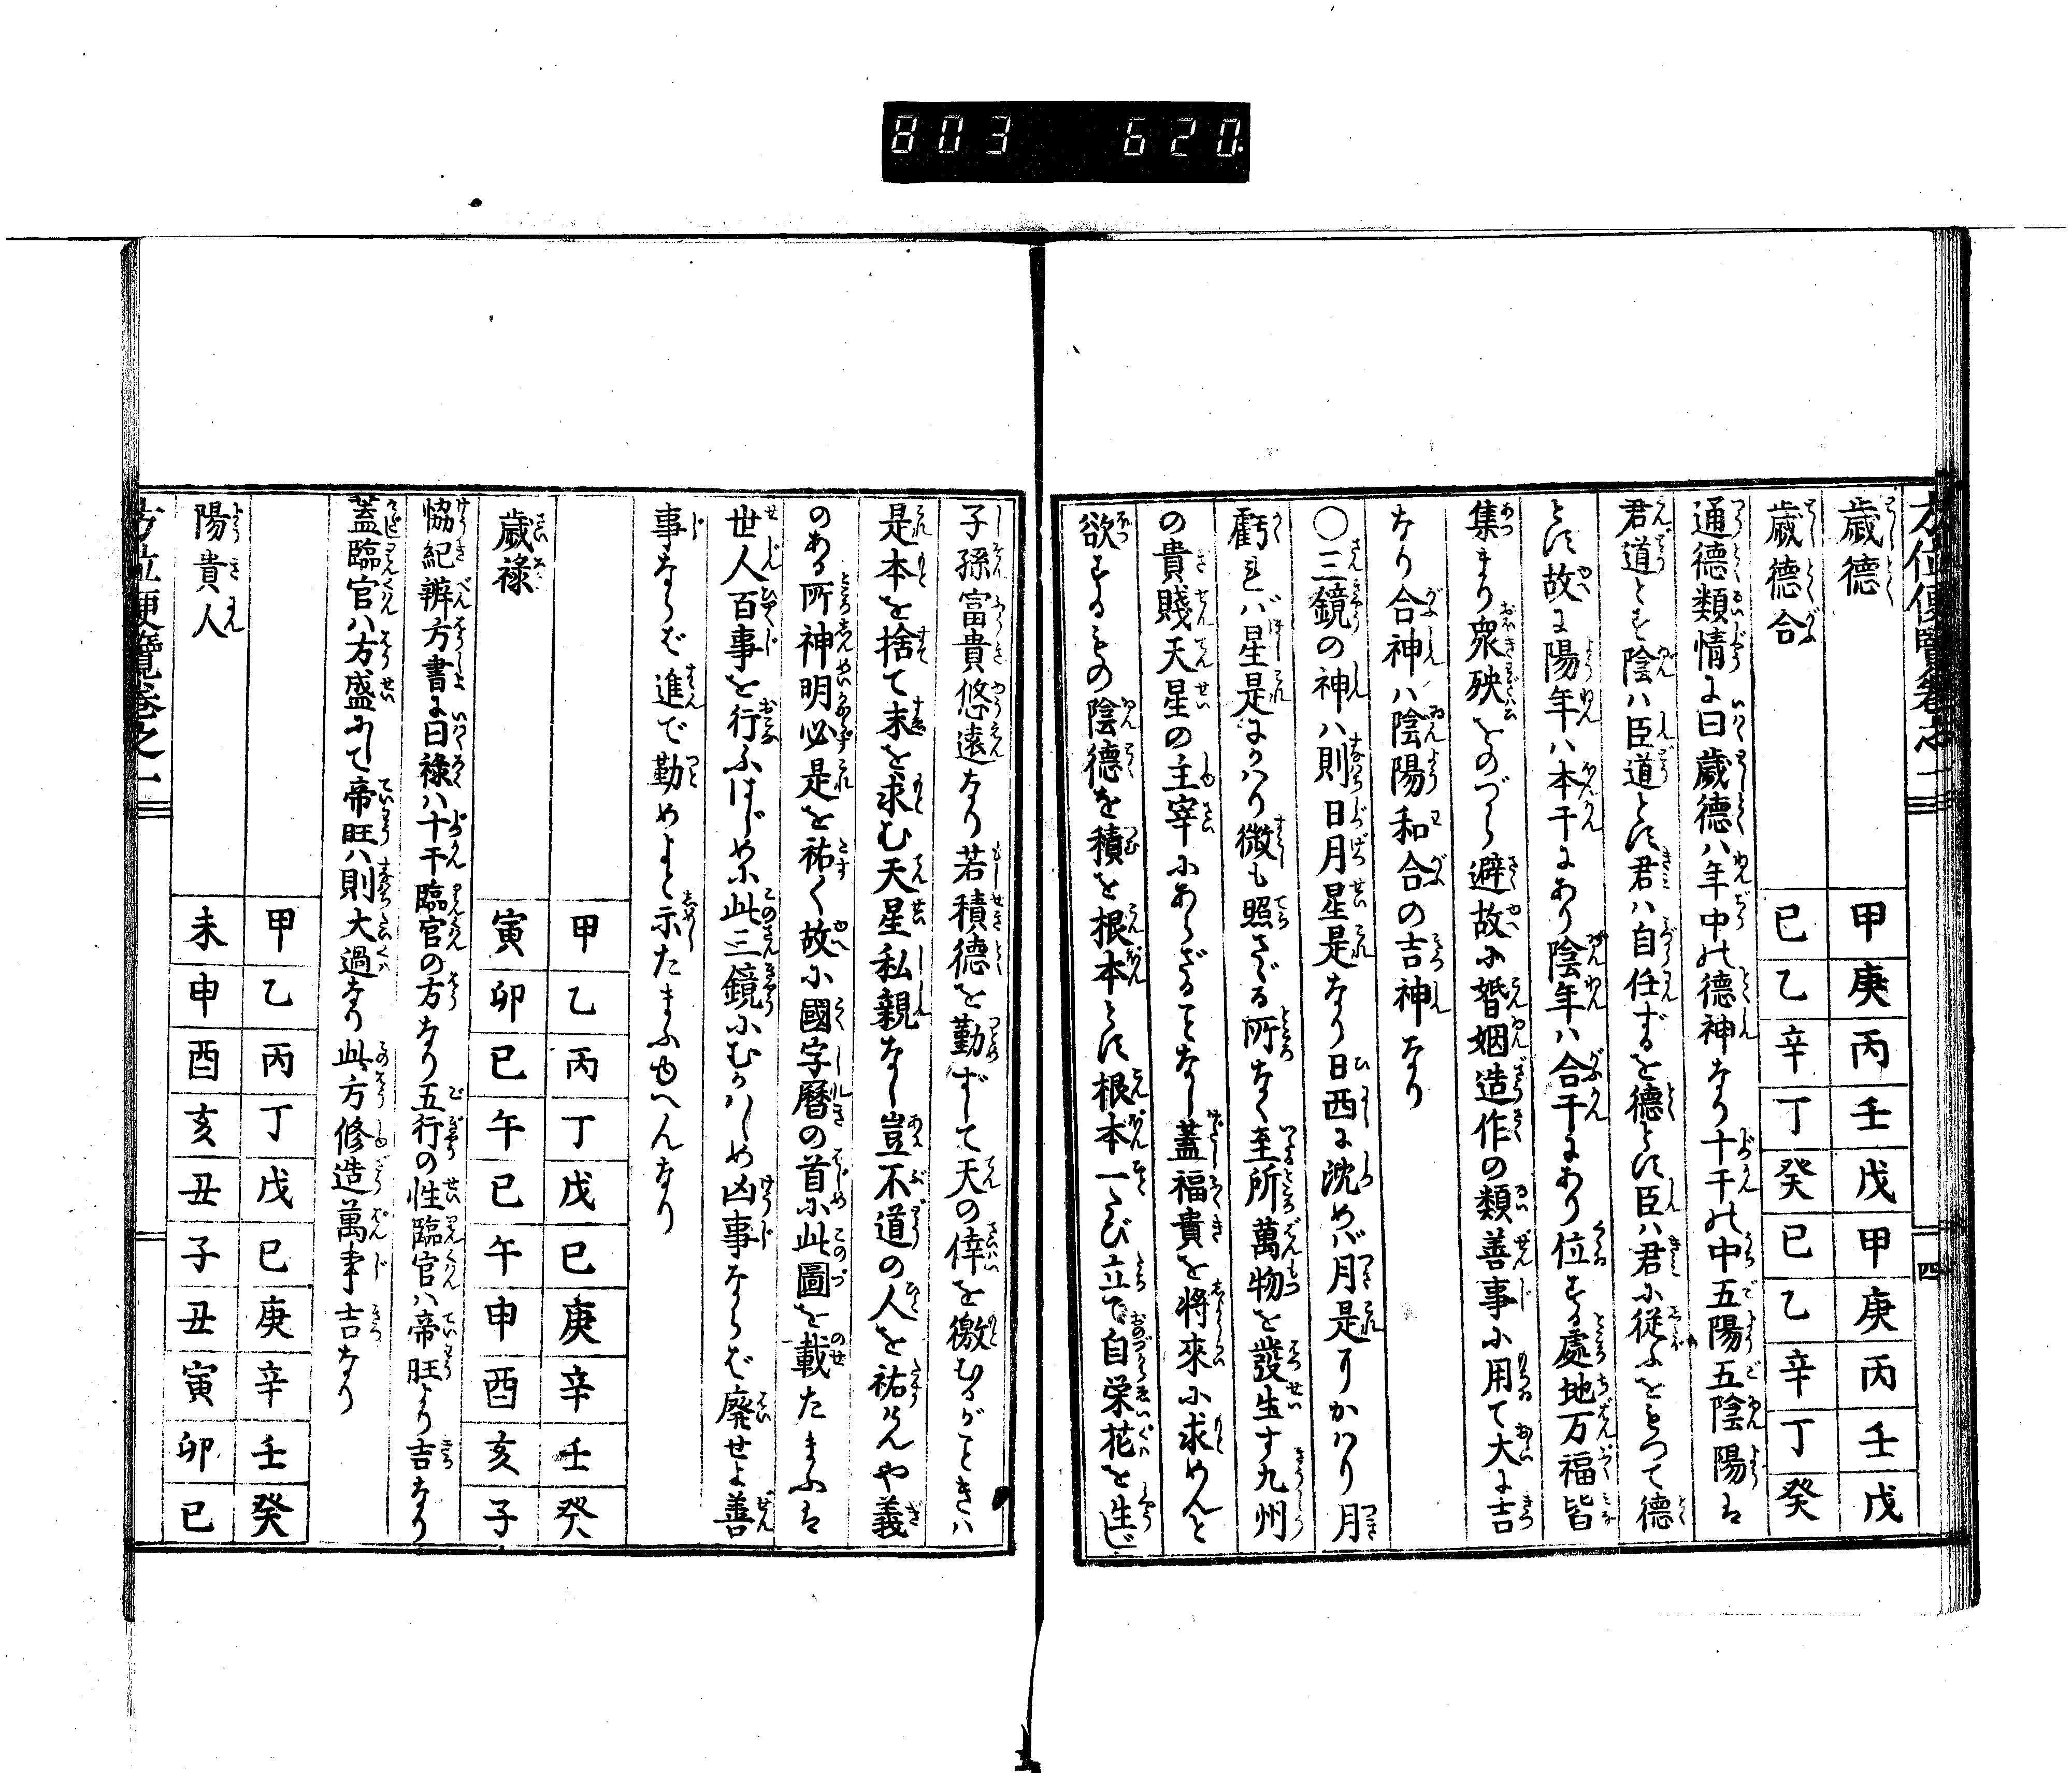 803 620
方位便覽卷之一 四
歳德 甲 庚 丙 壬 戊 甲 庚 丙 壬 戊
歳德合 己 乙 辛 丁 癸 己 乙 辛 丁 癸
通德類情に曰歳德ハ年中の德神なり十干の中五陽五陰陽は
君道とす陰ハ臣道とす君ハ自任ずるを德とす臣ハ君に從ふをもつて德
とす故に陽年ハ本干にあり陰年ハ合干にあり位する處地万福皆
集まり衆殃をのづら避故に婚姻造作の類善事に用て大に吉
なり合神ハ陰陽和合の吉神なり
〇三鏡の神ハ則日月星是なり日西に沈めバ月是にかハり月
虧れバ星是にかハり微も照さゞる所なく至所萬物を發生す九州
の貴賤天星の主宰にあらざることなし蓋福貴を將來に求めんと
欲するもの陰德を積を根本とす根本一たび立で自栄花を生じ
子孫富貴悠遠なり若積德を勤ずして天の倖を徼むるがごときハ
是本を捨て末を求む天星私親なし豈不道の人を祐けんや義
のある所神明必是を祐く故に國字暦の首に此圖を載たまふは
世人百事を行ふはじめに此三鏡にむかハしめ凶事ならバ廃せよ善
事ならバ進で勤めよと示たまふゆへんなり
歳禄 甲 乙 丙 丁 戊 己 庚 辛 壬 癸
寅 卯 巳 午 巳 午 申 酉 亥 子
協紀辨方書に曰禄ハ十干臨官の方なり五行の性臨官ハ帝旺より吉なり
蓋臨官ハ方盛にて帝旺ハ則大過なり此方修造萬事吉なり
陽貴人 甲 乙 丙 丁 戊 己 庚 辛 壬 癸
未 申 酉 亥 丑 子 丑 寅 卯 巳
方位便覽卷之一